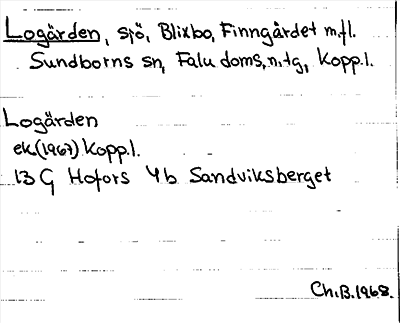 Logärden, sjö, Blixbo, Finngårdet m.fl.
Sundborns sn, Falu doms.n.tg, Kopp.l.
Logärden
ek(1967) Kopp.l.
13 G Hofors 4b Sandviksberget
Ch.B.1968.